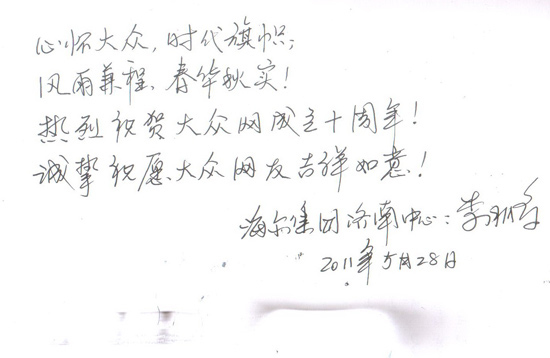 心怀大众，时代旗帜；
风雨兼程、春华秋实！
热烈祝贺大众网成立十周年！
诚挚祝愿大众网友吉祥如意！
海尔集团济南中心：李
2011年5月28日